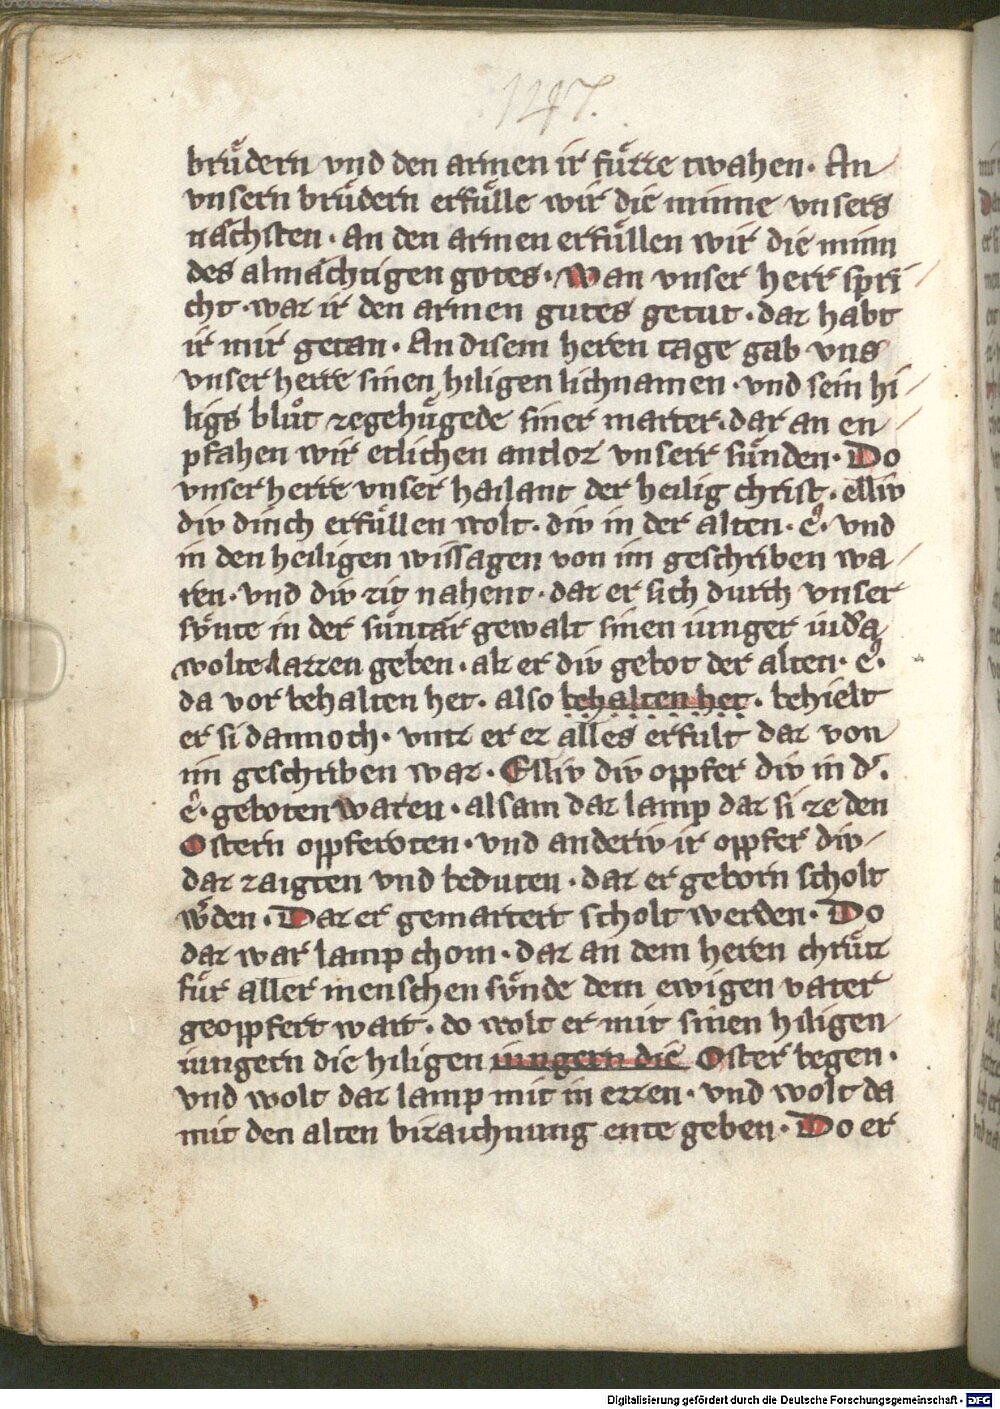 1247.
bruͤdern vnd den armen ir fuͤzze twahen · An
vnsern bruͤdern erfuͤlle wir die minne vnsers
nachsten · An den armen erfuͤllen wir die minn
des almachtigen gotes · Wan vnser herr spri
cht · waz ir den armen gutes getut · daz habt
ir mir getan · An disem heren tage gab vns
vnser herre sinen hiligen lichnamen · vnd sein hi
ligs bluͦt zegehuͤgede siner marter · dar an en
pfahen wir etlichen antloz vnserr suͤnden · Do
vnser herre vnser hailant der heilig christ · elliv
div dinch erfuͤllen wolt · div in der alten · e · vnd
in den heiligen wissagen von im geschriben wa
ren · vnd div zit nahent · daz er sich durch vnser
sv̈nte in der suͤntar gewalt sinen iunger iudā
wolte lazzen geben · als er div gebot der alten · e ·
da vor behalten het · also behalten het · behielt
er si dannoch · vntz er ez alles erfult daz von
im geschriben waz · Elliv div oppfer div in d̓ ·
e · geboten waren · alsam daz lamp daz si ze den
Ostern oppferoten · vnd anderiv ir oppfer div
daz zaigten vnd beduten · daz er geborn scholt
w̓den · Daz er gemartert scholt werden · Do
daz war lamp chom · daz an dem heren chruͤtz
fuͤr aller menschen sv̈nde dem ewigen vater
geoppfert wart · do wolt er mit sinen hiligen
iungern die hiligen iungern die Oster begen ·
vnd wolt daz lamp mit in ezzen · vnd wolt da
mit den alten bizaichnung ente geben · Do er
Digitalisierung gefördert durch die Deutsche Forschungsgemeinschaft - DFG